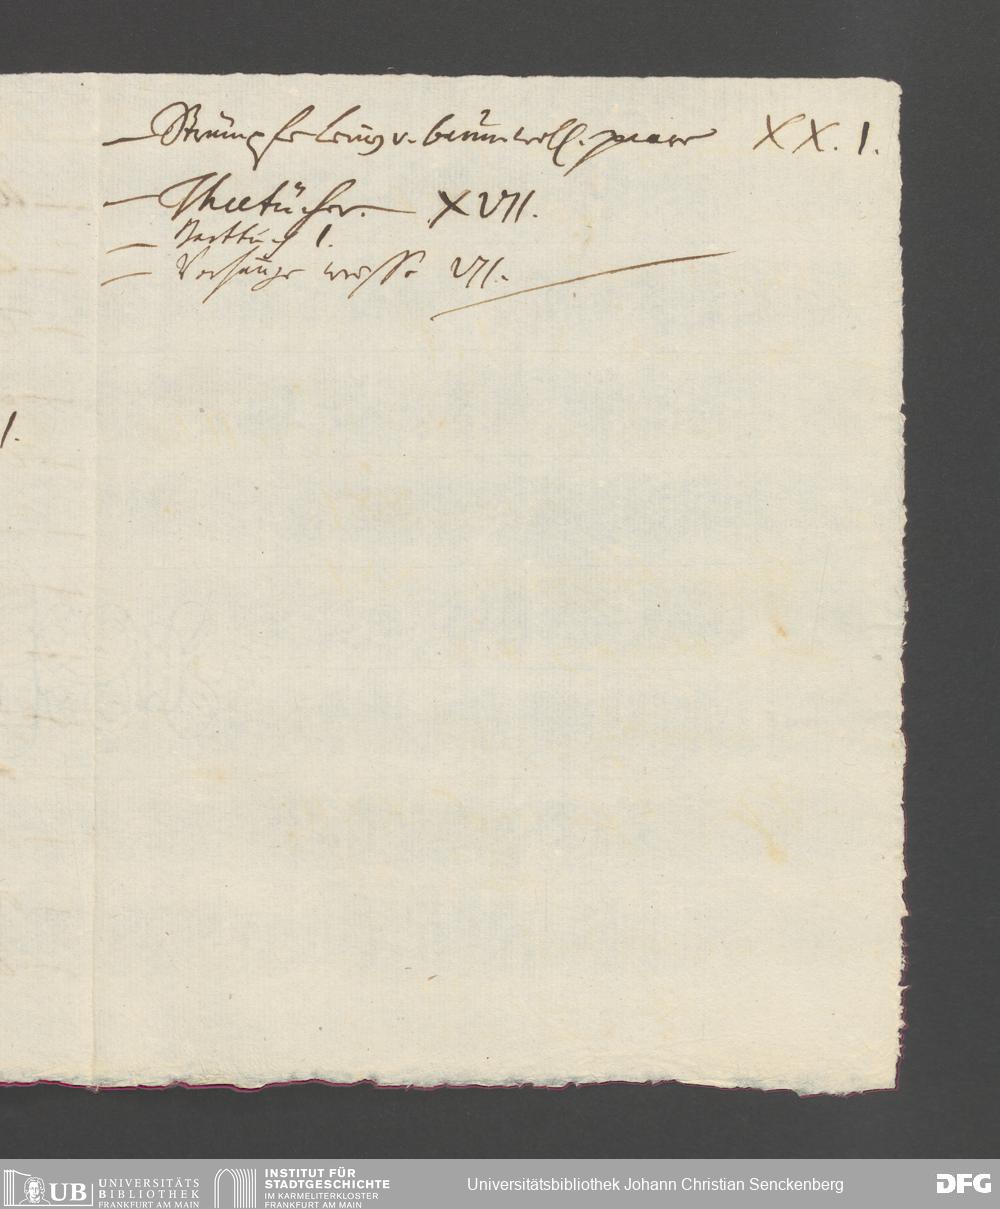 — Strümpfe leinen v. baumwoll. paar XX. I.
— Theetücher. — XVII.
— Barttuch I.
— Vorhänge weisse VII.
I.
UB UNIVERSITÄTS BIBLIOTHEK FRANKFURT AM MAIN
INSTITUT FÜR STADTGESCHICHTE IM KARMELITERKLOSTER FRANKFURT AM MAIN
Universitätsbibliothek Johann Christian Senckenberg
DFG